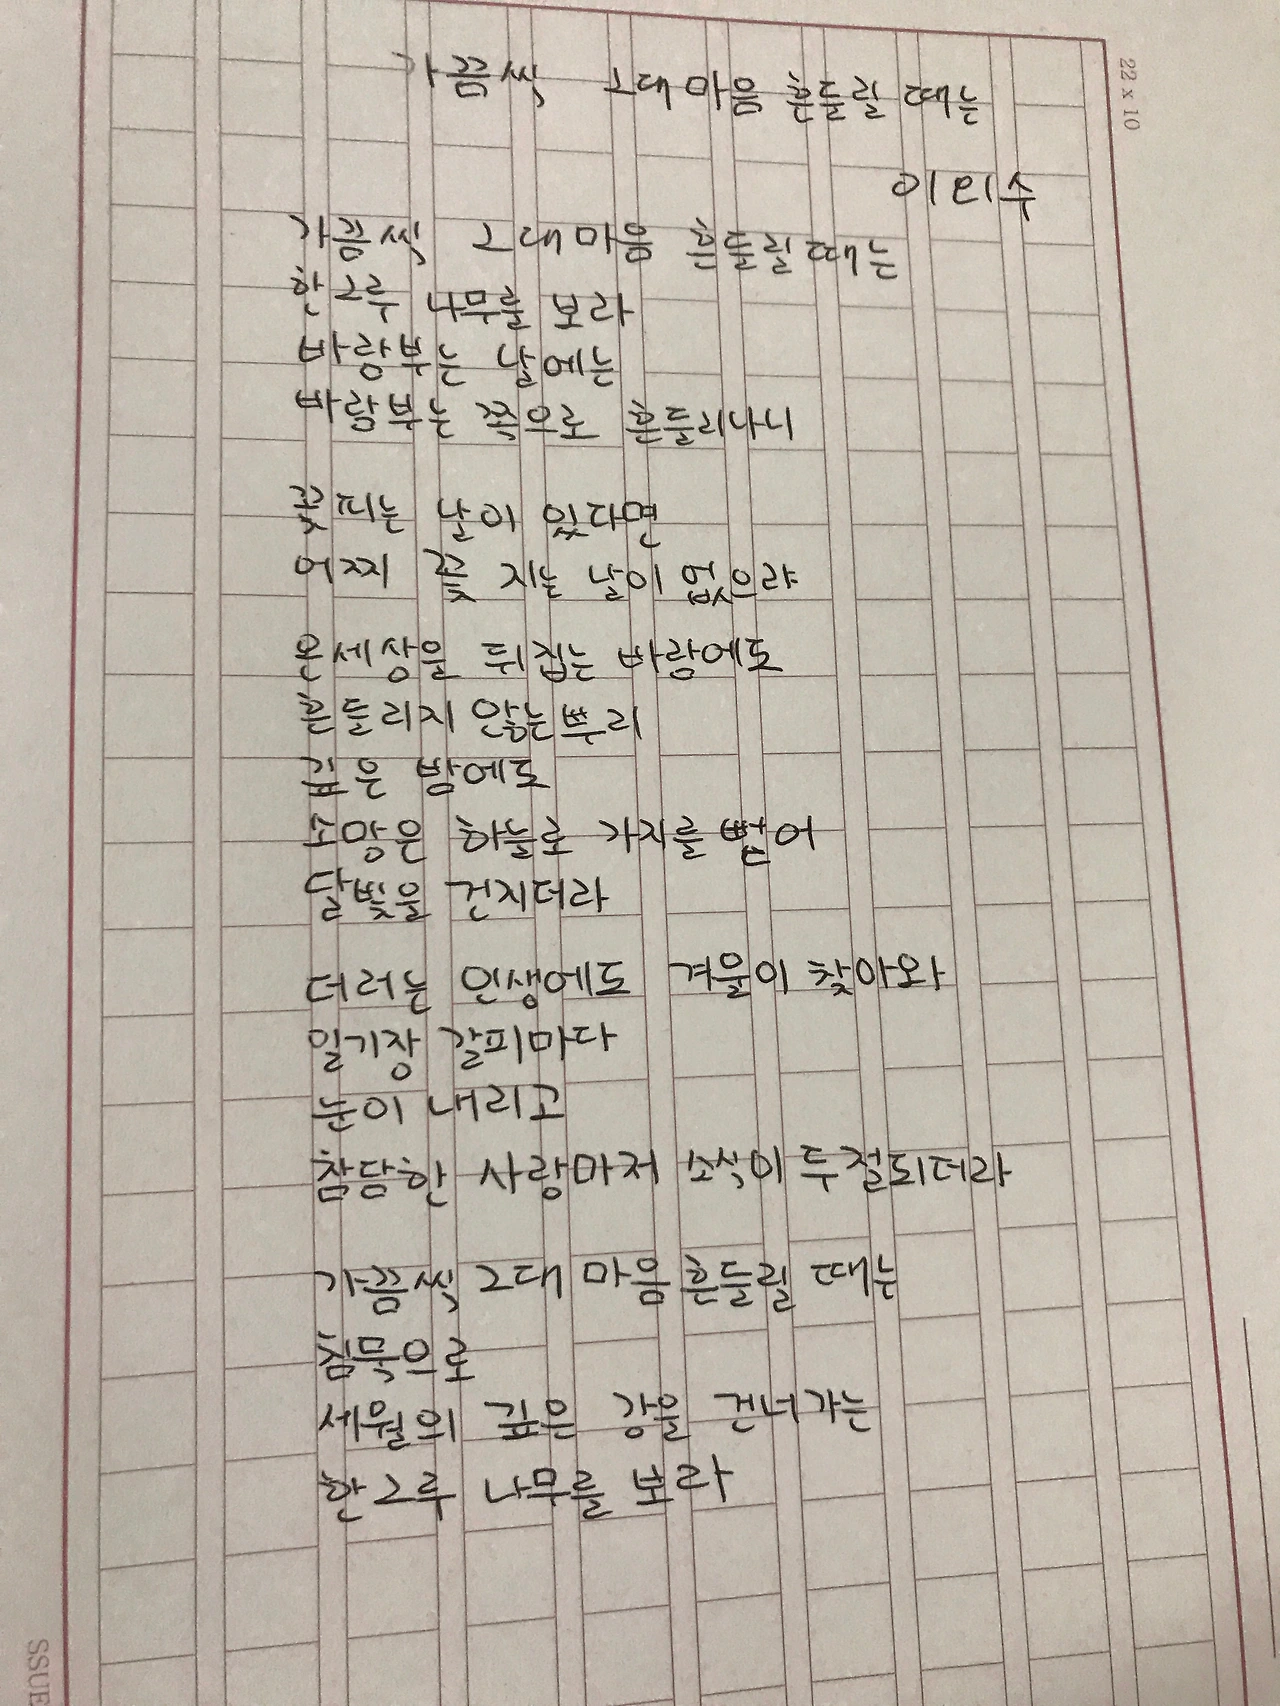 가끔씩 그대 마음 흔들릴 때는
22 x 10
이외수
가끔씩 그대 마음 흔들릴 때는
한 그루 나무를 보라
바람부는 날에는
바람부는 쪽으로 흔들리나니
꽃피는 날이 있다면
어찌 꽃 지는 날이 없으랴
온세상을 뒤집는 바람에도
흔들리지 않는 뿌리
깊은 밤에도
소망은 하늘로 가지를 뻗어
달빛을 건지더라
더러는 인생에도 겨울이 찾아와
일기장 갈피마다
눈이 내리고
참담한 사랑마저 소식이 두절되더라
가끔씩 그대 마음 흔들릴 때는
침묵으로
세월의 깊은 강을 건너가는
한 그루 나무를 보라